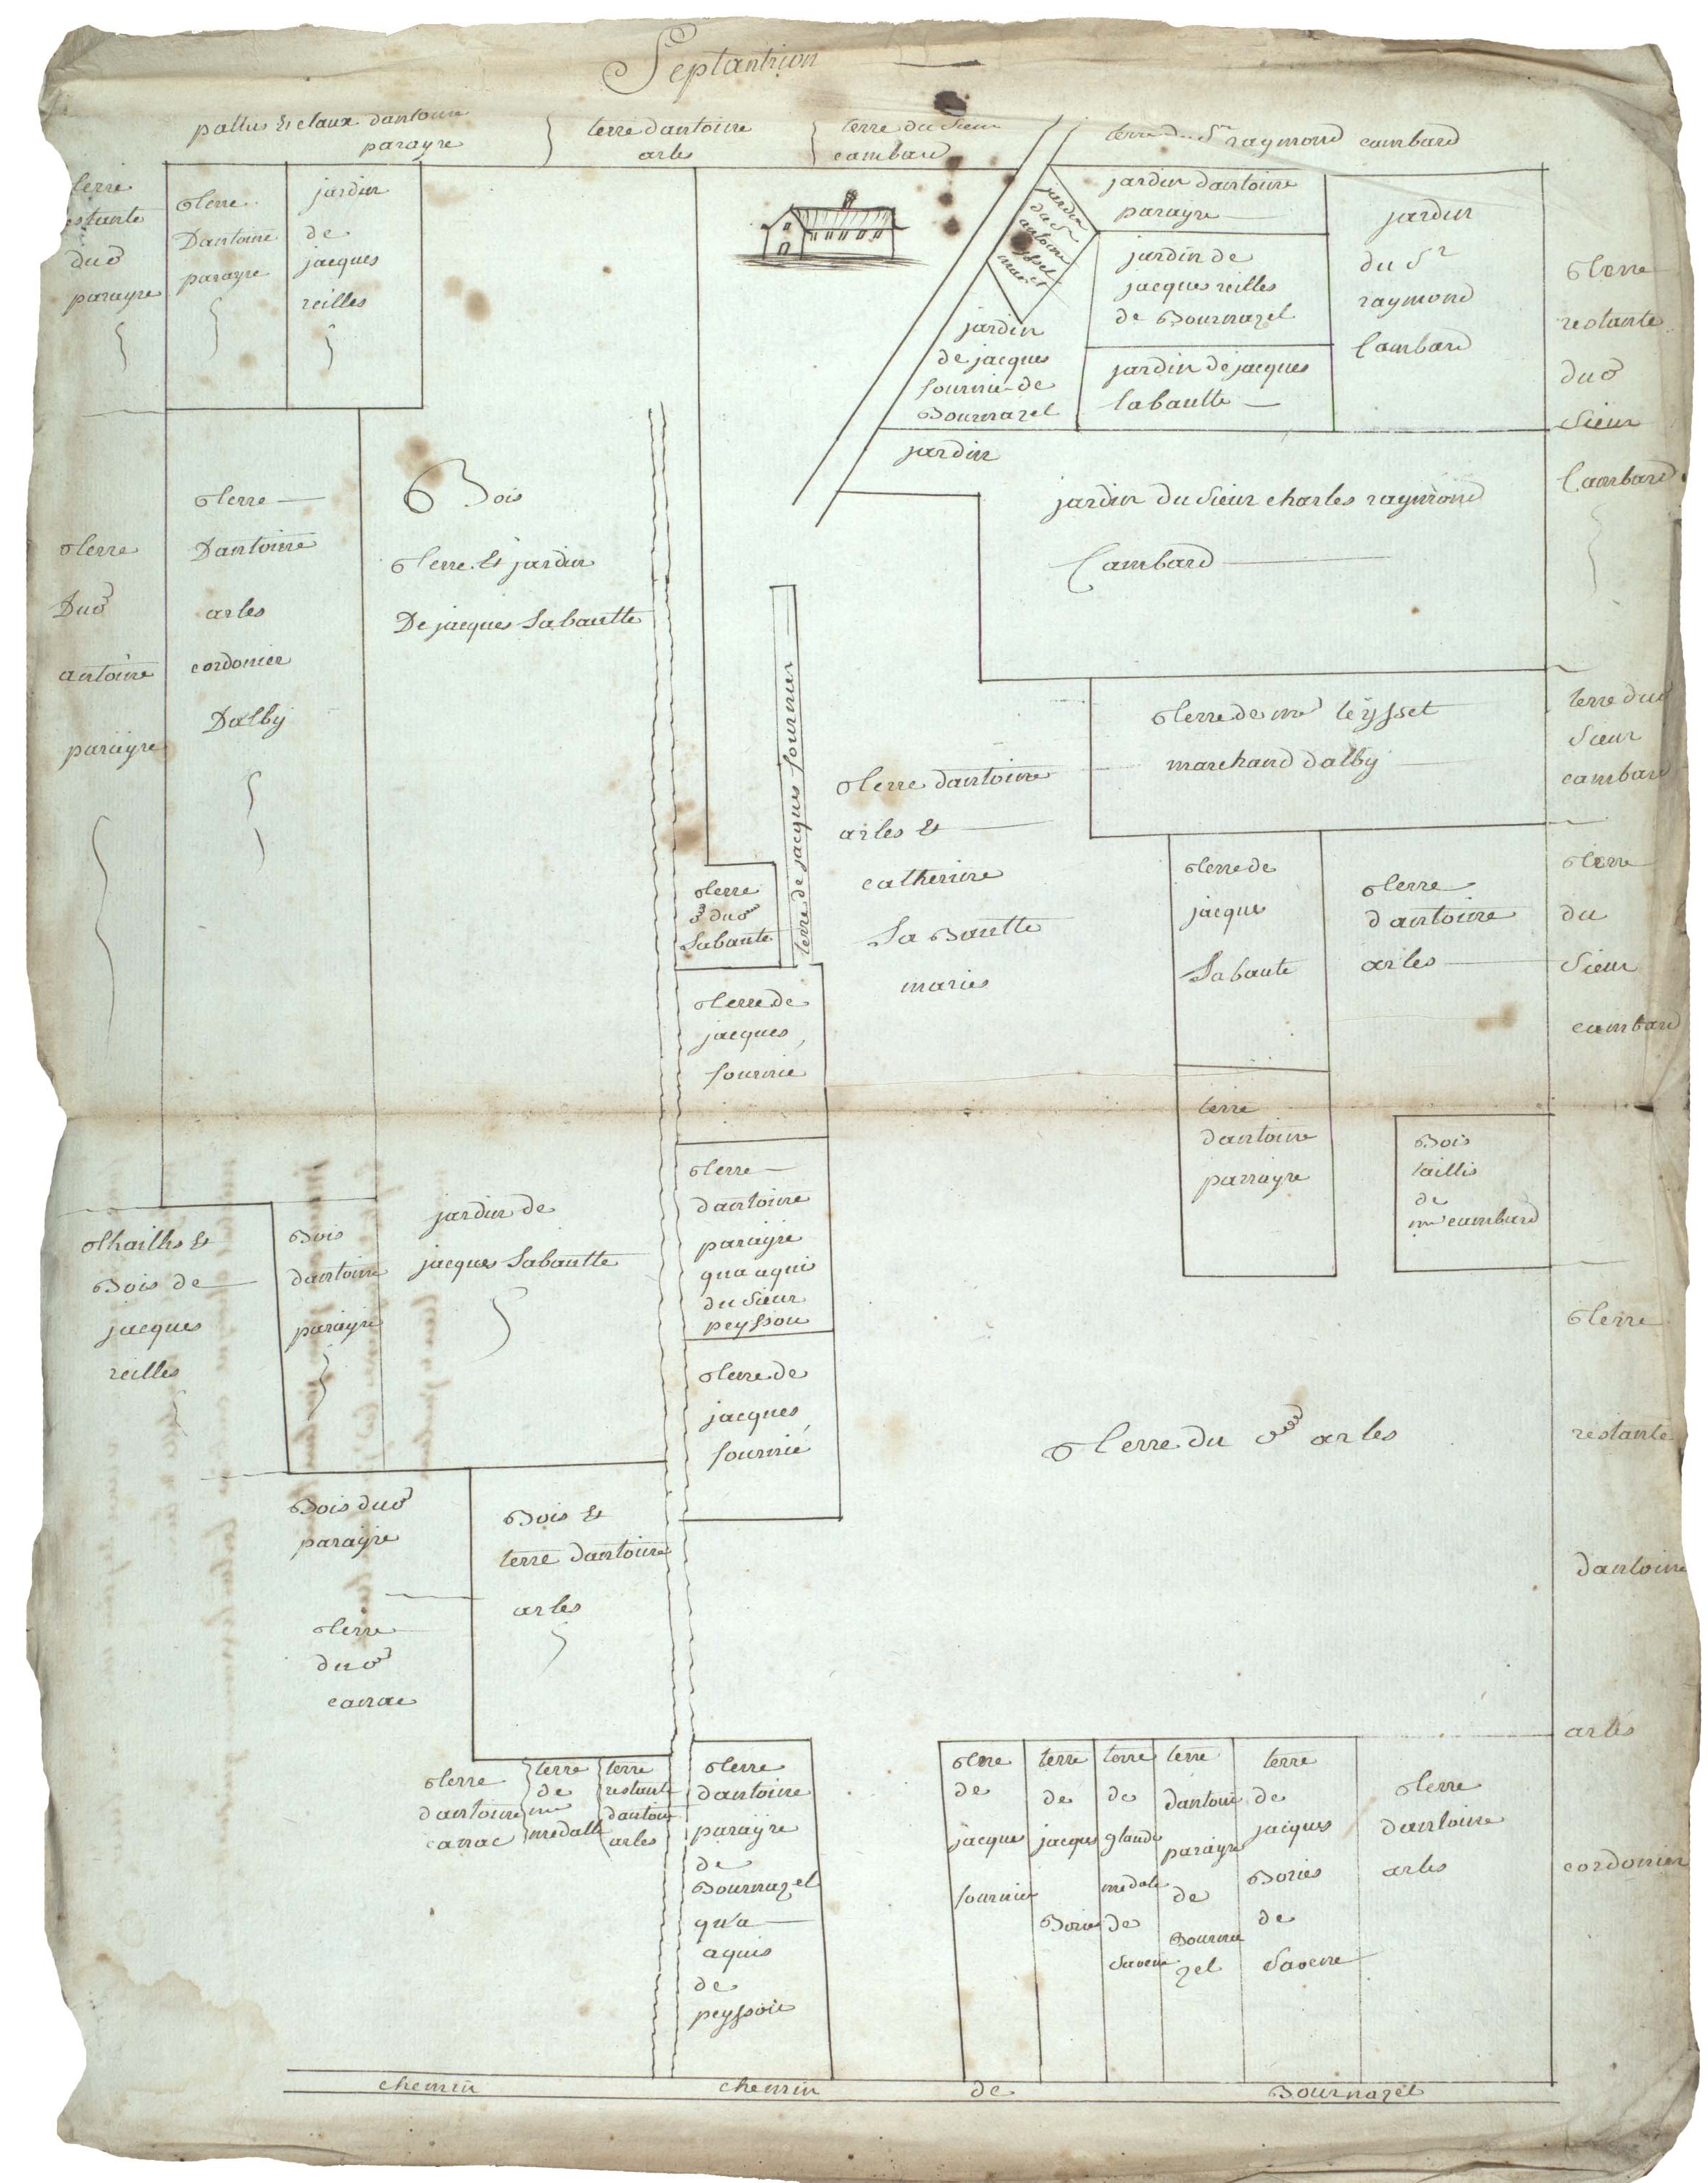 Septantrion
pattus & claux dantoine
parayre
terre dantoine
arles
terre du sieur
cambard
terre du Sr raymond cambard
terre
restante
dud
parayre
terre
Dantoine
parayre
jardin
de
jacques
reilles
jardin
du Sr
antoine
jardin dantoine
parayre
jardin de
jacques reilles
de Bournazel
jardin de jacques
labautte
jardin
de jacques
fournié de
Bournazel
jardin
du Sr
raymond
Cambard
terre
restante
dud
Sieur
Cambard
jardin
jardin du Sieur charles raymond
Cambard
terre
Dud
antoine
parayre
terre
Dantoine
arles
cordonier
Dalby
Bois
terre & jardin
De jacques Labautte
terre de jacques fournier
terre de mr leÿsset
marchand dalby
terre dud
Sieur
cambard
terre dantoine
arles &
catherine
La Bautte
maries
terre
dud
Labaute
terre de
jacques
Labaute
terre
dantoine
arles
terre
du
Sieur
cambard
terre de
jacques
fournié
terre
dantoine
parrayre
Bois
taillis
de
mr cambard
thailhs &
Bois de
jacques
reilles
Bois
dantoine
parayre
jardin de
jacques Labautte
terre
dantoine
parayre
qua aquis
du Sieur
peyssou
terre de
jacques
fournié
terre du sud arles
terre
restante
dantoine
arles
cordonier
Bois dud
parayre
Bois &
terre dantoine
arles
terre
dud
carrac
terre
dantoine
carrac
terre
de
mr
medalle
terre
restante
dantoine
arles
terre
dantoine
parayre
de
Bournazel
qu'a
aquis
de
peyssou
terre
de
jacques
fournier
terre
de
jacques
Bories
terre
de
glaude
medale
de
Savene
terre
dantoine
parayre
de
Bourna
zel
terre
de
jacques
Bories
de
Savene
terre
dantoine
arles
chemin
chemin
de
Bournazel